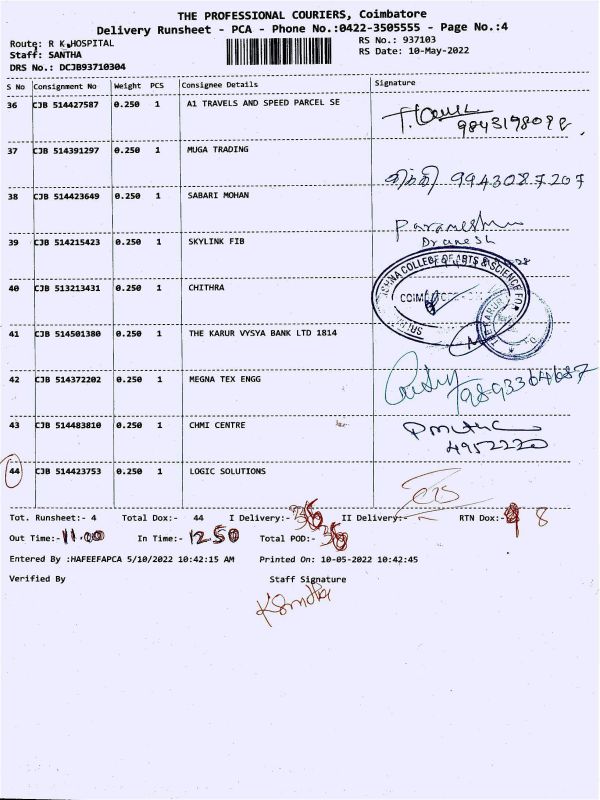 THE PROFESSIONAL COURIERS, Coimbatore
Delivery Runsheet - PCA - Phone No.:0422-3505555 - Page No.:4
Route: R K HOSPITAL
RS No.: 937103
Staff: SANTHA
RS Date: 10-May-2022
DRS No.: DCJB93710304
S No Consignment No Weight PCS Consignee Details Signature
36 CJB 514427587 0.250 1 A1 TRAVELS AND SPEED PARCEL SE
9843198098
37 CJB 514391297 0.250 1 MUGA TRADING
9943087207
38 CJB 514423649 0.250 1 SABARI MOHAN
39 CJB 514215423 0.250 1 SKYLINK FIB
COLLEGE OF ARTS & SCIENCE FOR
40 CJB 513213431 0.250 1 CHITHRA
41 CJB 514501380 0.250 1 THE KARUR VYSYA BANK LTD 1814
42 CJB 514372202 0.250 1 MEGNA TEX ENGG
43 CJB 514483810 0.250 1 CHMI CENTRE
4952220
44 CJB 514423753 0.250 1 LOGIC SOLUTIONS
Tot. Runsheet:- 4 Total Dox:- 44 I Delivery:- 36 II Delivery:- - RTN Dox:- 8
Out Time:- 11.00 In Time:- 12.50 Total POD:- 36
Entered By :HAFEEFAPCA 5/10/2022 10:42:15 AM Printed On: 10-05-2022 10:42:45
Verified By Staff Signature